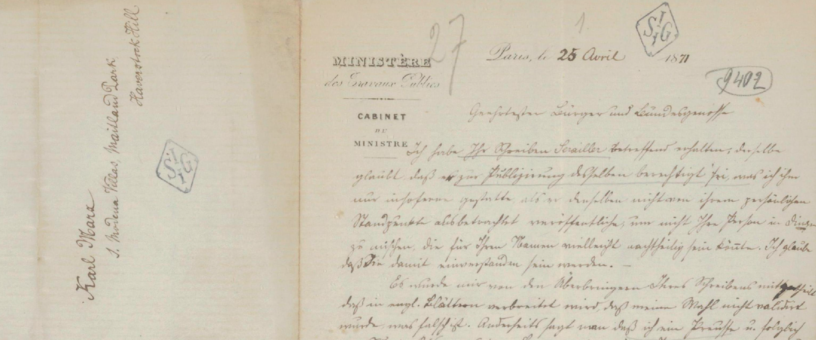 Karl Marx
1. Modena Villas, Maitland Park
Haverstock Hill
27
1.
MINISTÈRE
des Travaux Publics
CABINET
DU
MINISTRE
Paris, le 25 Avril 1871
9402
Geehrtester Bürger und Bundesgenosse
Ich habe Ihr Schreiben Serailler betreffend erhalten, derselbe
glaubt daß er zur Publizierung desselben berechtigt sei, was ich ihm
nur insoferne gestatte als er denselben nicht von ihrem persönlichen
Standpunkte als betrachtet veröffentliche, um nicht Ihre Person in Dinge
zu mischen, die für Ihren Namen vielleicht nachtheilig sein könnte. Ich glaube
daß Sie damit einverstanden sein werden. –
Es wurde mir von den Überbringern Ihres Schreibens mitgetheilt
daß in engl. Blättern verbreitet wird, daß meine Wahl nicht validirt
wurde, was falsch ist. Anderseits sagt man daß ich ein Preusse u. folglich